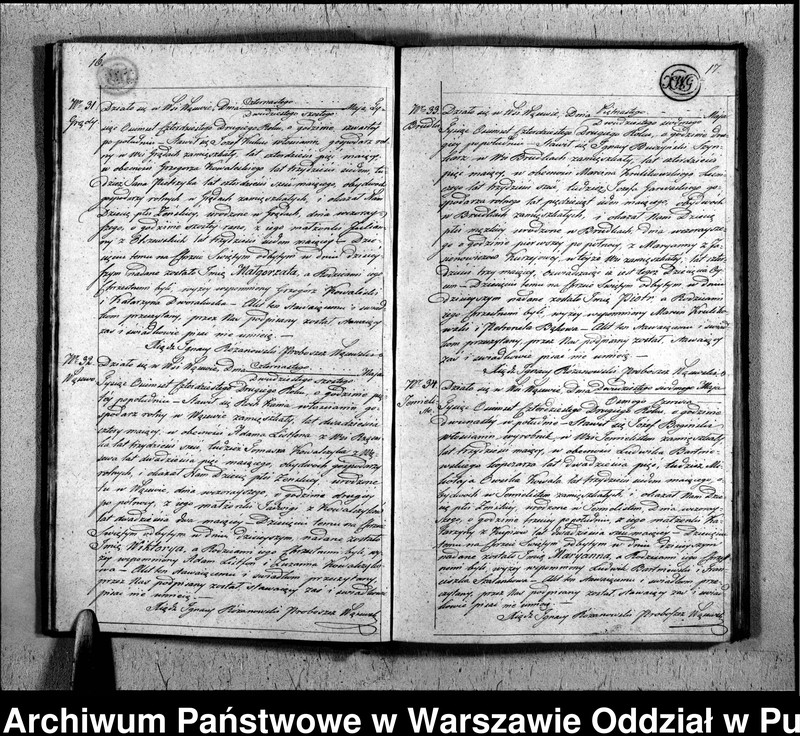 16.
N° 31
Grądy
Działo się w Wsi Wąsewie, Dnia Czternastego / Dwudziestego szóstego Maja Ty-
siąc Ośmset Czterdziestego Drugiego Roku, o godzinie czwartej
po południu. Stawił się Józef Kulas włościanin, gospodarz rol-
ny w wsi Grądach zamieszkały, lat czterdzieści pięć mający,
w obecności Grzegorza Kowalskiego lat trzydzieści siedm tu-
dzież Jana lat czterdzieści sześć mającego, obydwóch
gospodarzy rolnych w Grądach zamieszkałych, i okazał Nam
Dziecię płci Żeńskiej, urodzone w Grądach, dnia wczoraj-
szego, o godzinie szóstej rano, z jego małżonki Julian-
ny z lat trzydzieści siedm mającej — Dzie-
cięciu temu na Chrzcie Świętym odbytym w dniu dzisiej-
szym nadane zostało Imię Małgorzata, a Rodzicami jego
Chrzestnemi byli, wyżej wspomniony Grzegorz Kowalski
i Katarzyna — Akt ten stawającemu i świad-
kom przeczytany, przez Nas podpisany został stawający
zaś i świadkowie pisać nie umieją. —
Xiądz Ignacy Różanowski Proboszcz Wąsewski
N° 32.
Wąsewo
Działo się w Wsi Wąsewie, Dnia Czternastego / Dwudziestego szóstego Maja
Tysiąc Ośmset Czterdziestego Drugiego Roku, o godzinie pią-
tej popołudniu. Stawił się włościanin, go-
spodarz rolny w Wąsewie zamieszkały, lat dwadzieścia
cztery mający, w obecności Adama z Wsi
lat trzydzieści sześć, tudzież Tomasza Kowalczyka z Wą-
sewa lat dwadzieścia pięć mającego, obydwóch gospodarzy
rolnych, i okazał Nam Dziecię płci Żeńskiej, urodzone
tu w Wąsewie, dnia wczorajszego, o godzinie drugiej
po północy, z jego małżonki Jadwigi z Kowalczyków
lat dwadzieścia dwa mającej. Dziecięciu temu na Chrzcie
Świętym odbytym w dniu dzisiejszym, nadane zostało
Imię Wiktorya, a Rodzicami jego Chrzestnemi byli, wy-
żej wspomniony Adam i Zuzanna Kowalczyko-
wa — Akt ten stawającemu i świadkom przeczytany,
przez Nas podpisany został stawający zaś i świadkowie
pisać nie umieją. —
Xiądz Ignacy Różanowski Proboszcz Wąsewski
17.
N° 33
Brudki
Działo się w Wsi Wąsewie, Dnia Piętnastego / Dwudziestego siódmego Maja
Tysiąc Ośmset Czterdziestego Drugiego Roku, o godzinie dru-
giej popołudniu — Stawił się Ignacy
w Wsi Brudkach zamieszkały, lat czterdzieści
pięć mający, w obecności Marcina
lat trzydzieści sześć, tudzież Józefa go-
spodarza rolnego lat pięćdziesiąt siedm mającego, obydwóch
w Brudkach zamieszkałych, i okazał Nam dziecię
płci męzkiej urodzone w Brudkach dnia wczorajsze-
go o godzinie pierwszej po północy, z Maryanny z
w tejże Wsi zamieszkałej, lat czter-
dzieści trzy mającej, że jest tegoż Dziecięcia Oj-
cem — Dziecięciu temu na Chrzcie Świętym odbytym w dniu
dzisiejszym nadane zostało Imię Piotr, a Rodzicami
jego Chrzestnemi byli, wyżej wspomniony Marcin
i Petronela Bąkowa — Akt ten stawającemu i świad-
kom przeczytany, przez Nas podpisany został, Stawający
zaś i świadkowie pisać nie umieją. —
Xiądz Ignacy Różanowski Proboszcz Wąsewski
N° 34.
Działo się w Wsi Wąsewie, Dnia Dwudziestego siódmego Maja / Ósmego Czerwca
Tysiąc Ośmset Czterdziestego Drugiego Roku, o godzinie
dwunastej w południe — Stawił się Józef
Włościanin wyrobnik, w Wsi zamieszkały,
lat trzydzieści mający, w obecności Ludwika
lat dwadzieścia pięć, tudzież Mi-
kołaja Kowala lat trzydzieści siedm mającego, o-
bydwóch w zamieszkałych i okazał Nam dzie-
cię płci Żeńskiej, urodzone w dnia wczoraj-
szego, o godzinie trzeciej popołudniu, z jego małżonki Ka-
tarzyny z lat dwadzieścia sześć mającej — Dziecięciu
temu na Chrzcie Świętym odbytym w dniu dzisiejszym
nadane zostało Imię Maryanna, a Rodzicami jego Chrzest-
nemi byli, wyżej wspomniony Ludwik i Fran-
ciszka — Akt ten stawającemu i świadkom prze-
czytany, przez Nas podpisany został stawający zaś i świad-
kowie pisać nie umieją. —
Xiądz Ignacy Różanowski Proboszcz Wąsewski
Archiwum Państwowe w Warszawie Oddział w Pu